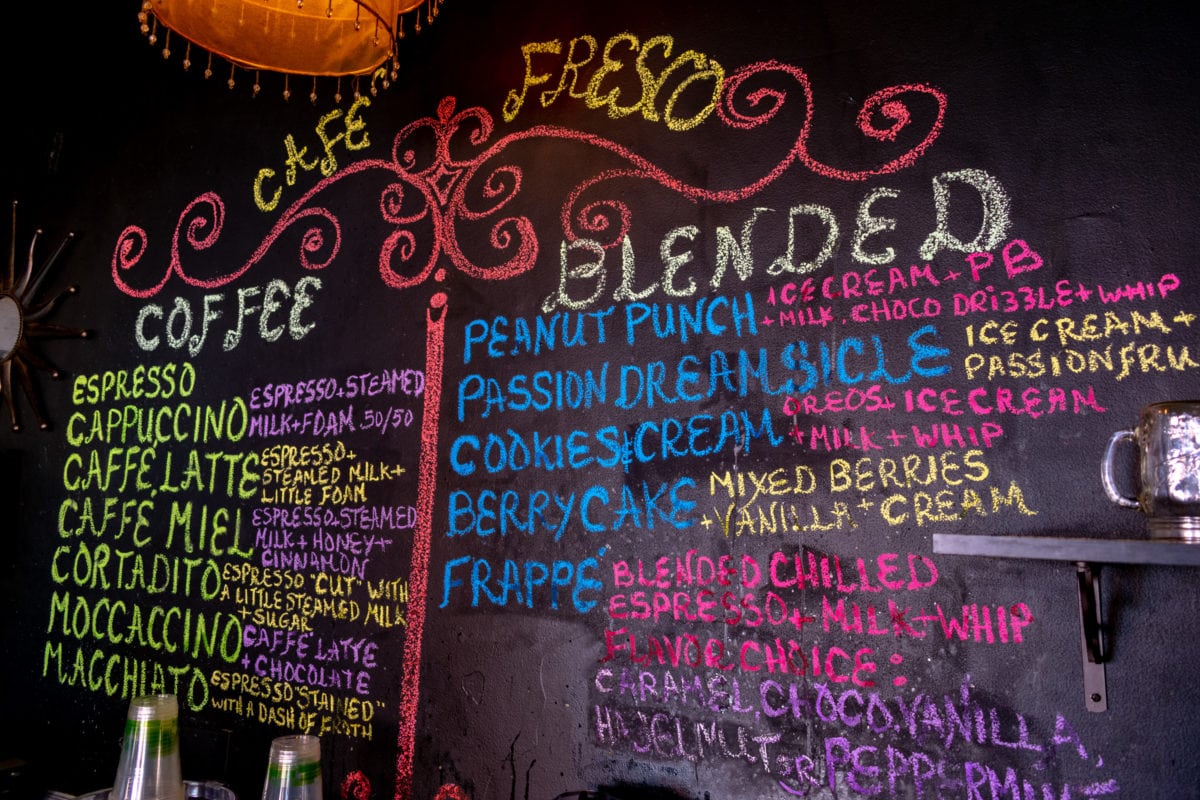 CAFÉ FRESCO
COFFEE
ESPRESSO
CAPPUCCINO ESPRESSO+STEAMED
MILK+FOAM 50/50
CAFFÉ LATTE ESPRESSO+
STEAMED MILK+
LITTLE FOAM
CAFFÉ MIEL ESPRESSO+STEAMED
MILK+HONEY+
CINNAMON
CORTADITO ESPRESSO "CUT" WITH
A LITTLE STEAMED MILK
+ SUGAR
MOCCACCINO CAFFÉ LATTE
+ CHOCOLATE
MACCHIATO ESPRESSO "STAINED"
WITH A DASH OF FROTH
BLENDED
PEANUT PUNCH ICE CREAM + PB
+ MILK. CHOCO DRIZZLE + WHIP
PASSION DREAMSICLE ICE CREAM +
PASSION FRU
COOKIES & CREAM OREOS + ICE CREAM
+ MILK + WHIP
BERRY CAKE MIXED BERRIES
+ VANILLA + CREAM
FRAPPÉ BLENDED CHILLED
ESPRESSO + MILK + WHIP
FLAVOR CHOICE:
CARAMEL CHOCO, VANILLA,
HAZELNUT OR PEPPERMI